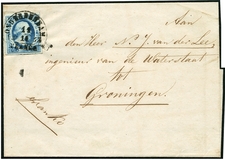 Aan
den Heer N. J. van der Lee
ingenieur van de Waterstaat
tot
Groningen.
Franko